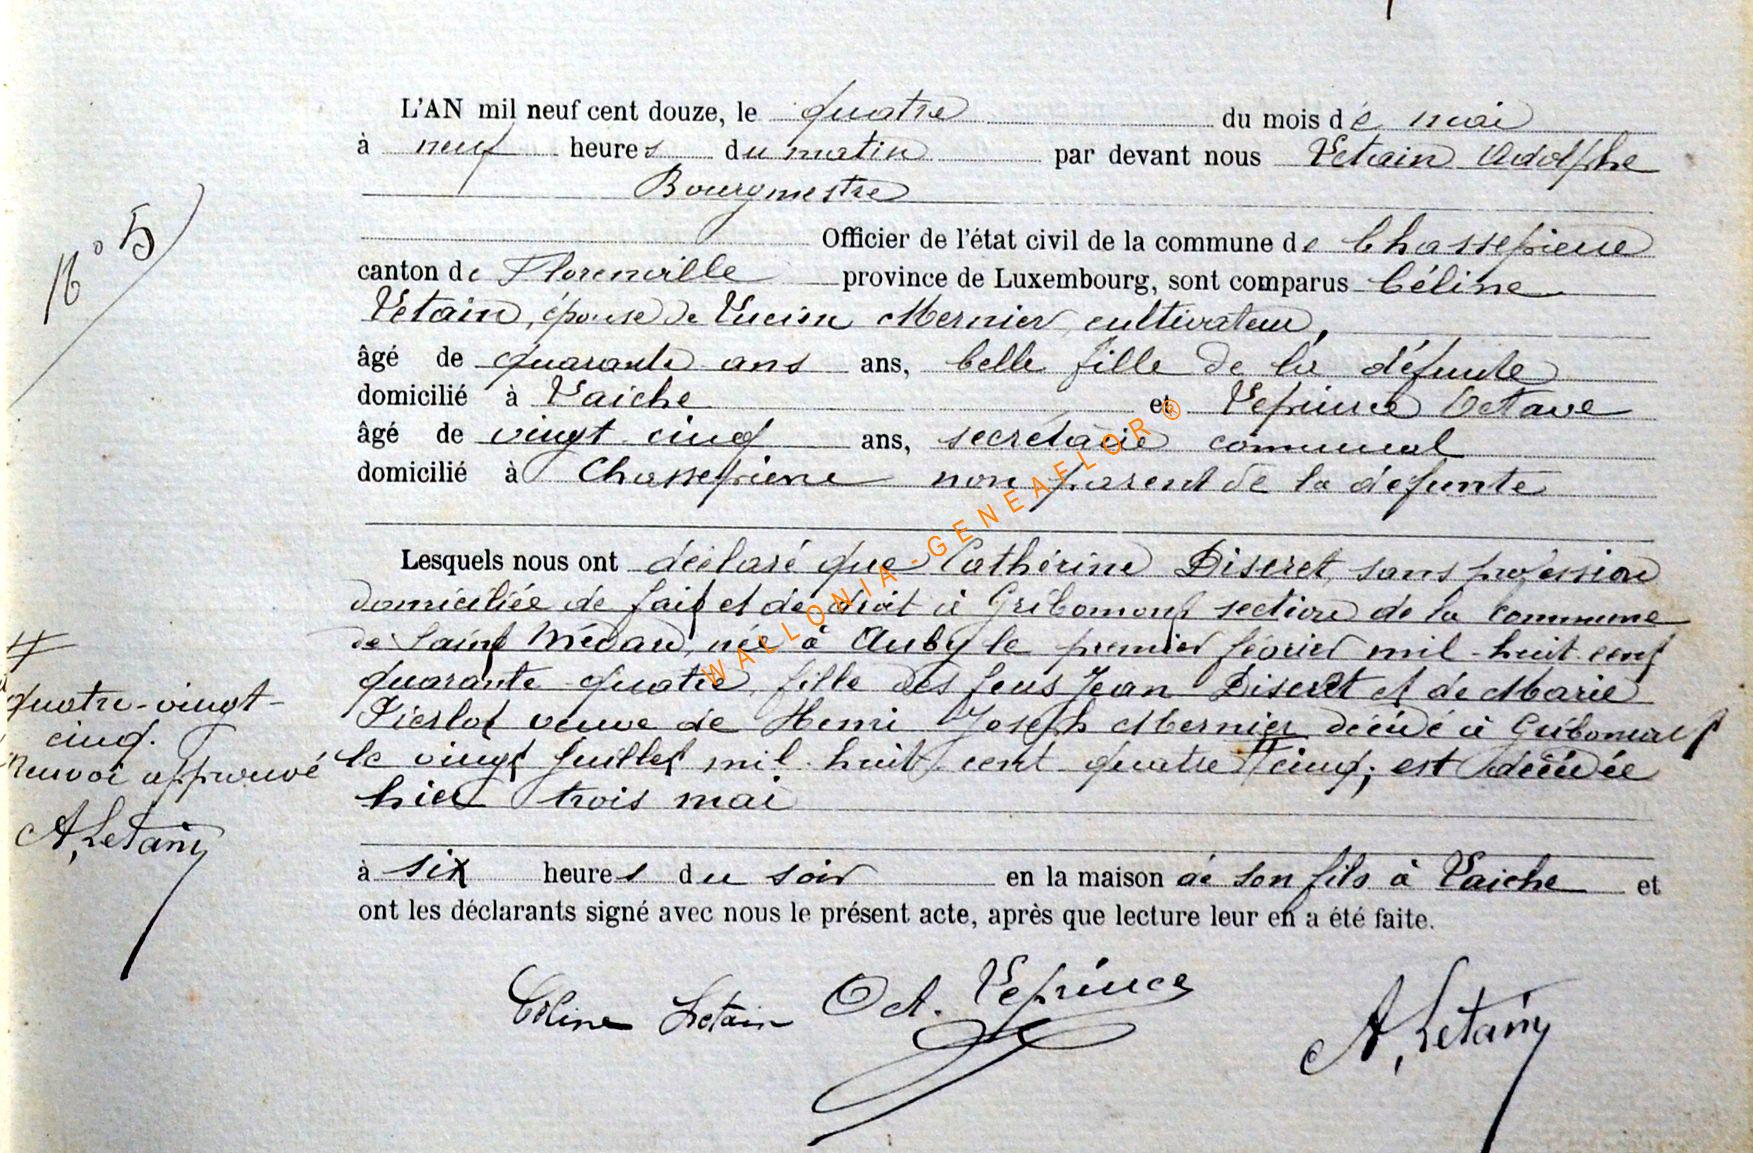 L'AN mil neuf cent douze, le quatre du mois de mai
à neuf heures du matin par devant nous Letain Adolphe
Bourgmestre
N° 5
Officier de l'état civil de la commune de Chassepierre
canton de Florenville province de Luxembourg, sont comparus Céline
Letain, épouse de Lucien Mernier cultivateur,
âgé de quarante ans ans, belle fille de la défunte
domicilié à Laiche et Leprince Octave
âgé de vingt cinq ans, secrétaire communal
domicilié à Chassepierre non parent de la défunte
Lesquels nous ont déclaré que Cathérine Diseret, sans profession
domiciliée de fait et de droit à Gribomont section de la commune
de Saint Médard, née à Auby le premier février mil huit cent
quarante quatre, fille des feus Jean Diseret et de Marie
Pierlot veuve de Henri Joseph Mernier décédé à Gribomont
le vingt juillet mil huit cent quatre # cinq; est décédée
hier trois mai
#
quatre-vingt-
cinq.
Renvoi approuvé
A, Letain
à six heures du soir en la maison de son fils à Laiche et
ont les déclarants signé avec nous le présent acte, après que lecture leur en a été faite.
Céline Letain Oct. Leprince A, Letain
WALLONIA-GENEAFLOR®